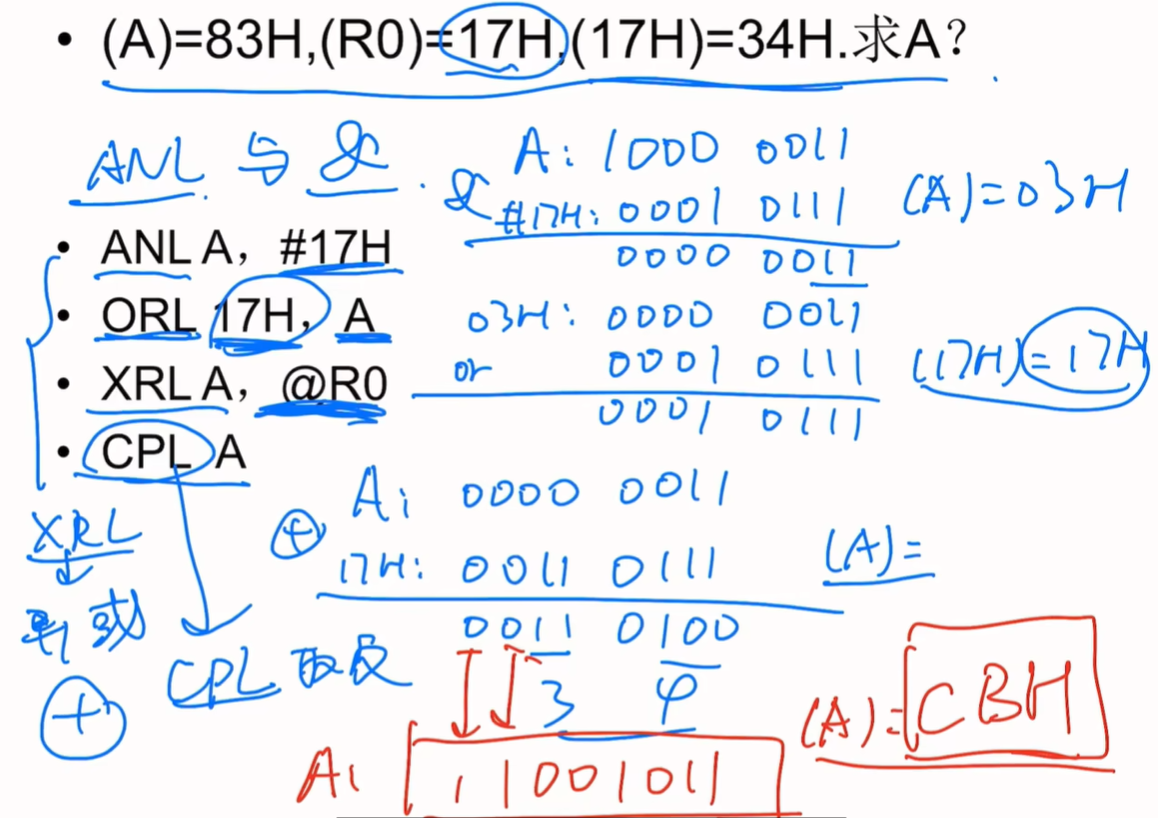 • (A)=83H,(R0)=17H,(17H)=34H.求A?
ANL 与 &
A: 1000 0011
& #17H: 0001 0111
0000 0011
(A)=03H
• ANL A, #17H
• ORL 17H, A
• XRL A, @R0
• CPL A
03H: 0000 0011
or 0001 0111
0001 0111
(17H)=17H
A: 0000 0011
⊕ 17H: 0011 0111
0011 0100
3 4
(A)=
XRL
异或
⊕
CPL 取反
A: 11001011
(A)=CBH